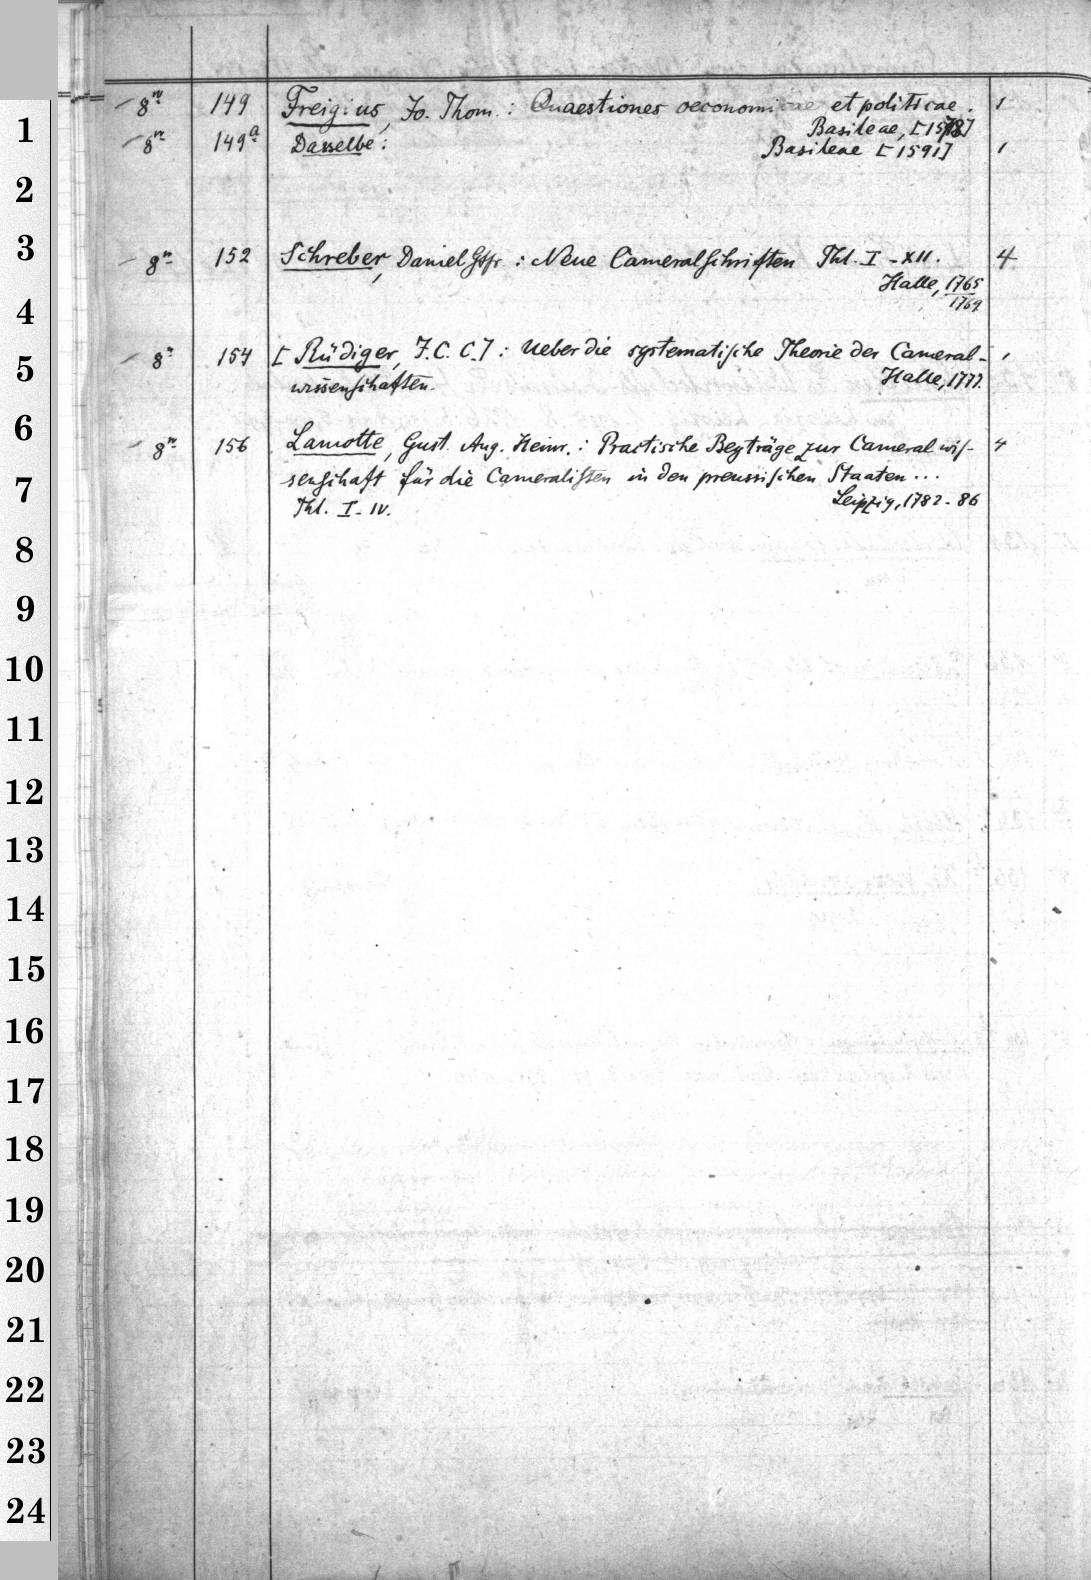 8º 149 Freigius, Jo. Thom.: Quaestiones oeconomicae et politicae. 1
Basileae, [1578]
8º 149a Dasselbe: Basileae [1591] 1
8º 152 Schreber, Daniel Gfr.: Neue Cameralschriften Thl. I-XII. 4
Halle, 1765
1769
8º 154 [Rüdiger, J.C.C.]: Ueber die systematische Theorie der Cameral- 1
wissenschaften. Halle, 1777.
8º 156 Lamotte, Gust. Aug. Heinr.: Practische Beyträge zur Cameralwis- 4
senschaft für die Cameralisten in den preussischen Staaten...
Thl. I-IV. Leipzig, 1782-86
1
2
3
4
5
6
7
8
9
10
11
12
13
14
15
16
17
18
19
20
21
22
23
24